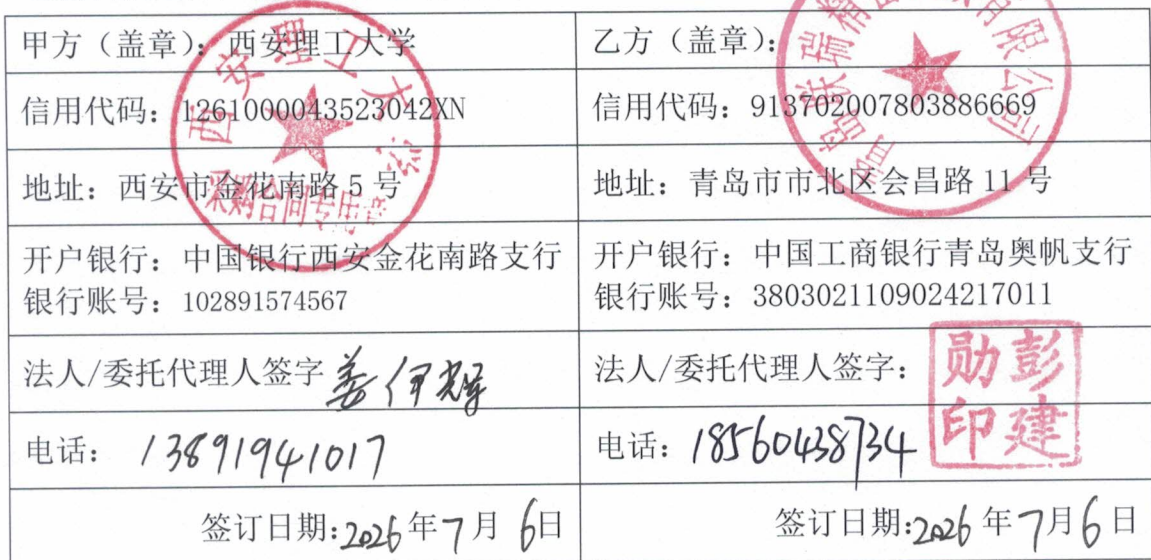 甲方（盖章）：西安理工大学
乙方（盖章）：
信用代码：1261000043523042XN
信用代码：913702007803886669
地址：西安市金花南路 5 号
地址：青岛市市北区会昌路 11 号
开户银行：中国银行西安金花南路支行
银行账号：102891574567
开户银行：中国工商银行青岛奥帆支行
银行账号：3803021109024217011
法人/委托代理人签字
法人/委托代理人签字：
电话：13891941017
电话：18560438734
签订日期:2026年7月6日
签订日期:2026年7月6日
西安理工大学
采购合同专用章
有限公司
彭建勋印